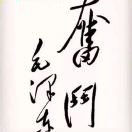 奮鬥
毛澤東